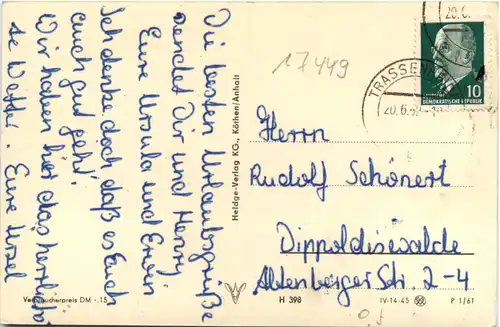 Die besten Urlaubsgrüße
sendet Dir und Henry
Eure Ursula und Erwin
Ich denke doch daß es Euch
auch gut geht!
Wir haben hier das herrlich-
ste Wetter. Eure Ursel
Verbraucherpreis DM -.15
Heldge-Verlag KG., Köthen/Anhalt
H 398
17449
20.6.
TRASSENH
20.6.6
10
DEMOKRATISCHE REPUBLIK
Herrn
Rudolf Schönert
Dippoldiswalde
Altenberger Str. 2-4
IV-14-45
P 1/61